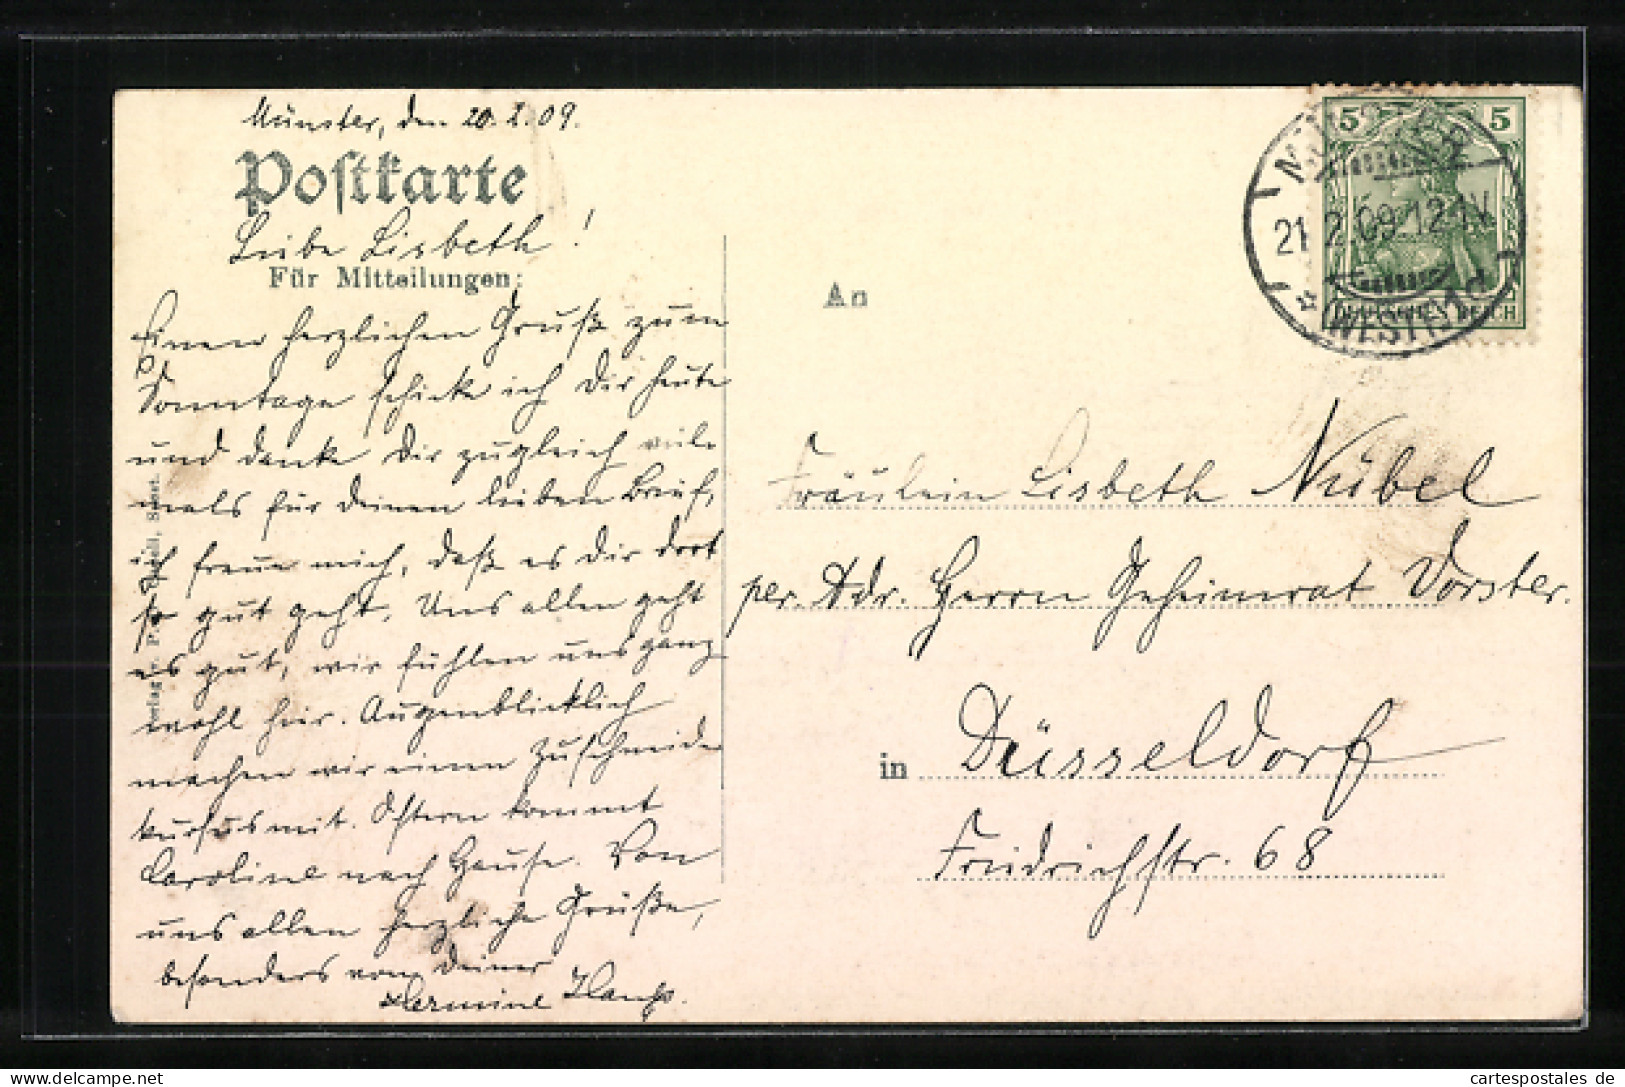 Münster, den 20.2.09.
Postkarte
Liebe Lisbeth!
Für Mitteilungen:
Einen herzlichen Gruß zum
Sonntage schicke ich Dir heute
und danke Dir zugleich viel-
mals für deinen lieben Brief,
ich freue mich, daß es Dir dort
so gut geht. Uns allen geht
es gut, wir fühlen uns ganz
wohl hier. Augenblicklich
machen wir einen Zuschneide
kursus mit. Ostern kommt
Caroline nach Hause. Von
uns allen herzliche Grüße,
besonders von Deiner
Hermine
Verlag v. P.
An
Fräulein Lisbeth Nübel
per. Adr. Herrn Geheimrat Vorster.
in Düsseldorf
Friedrichstr. 68
5 5
DEUTSCHES REICH
MÜNSTER
21.2.09.12-1V.
(WESTF.)1d
delcampe.net
cartespostales de